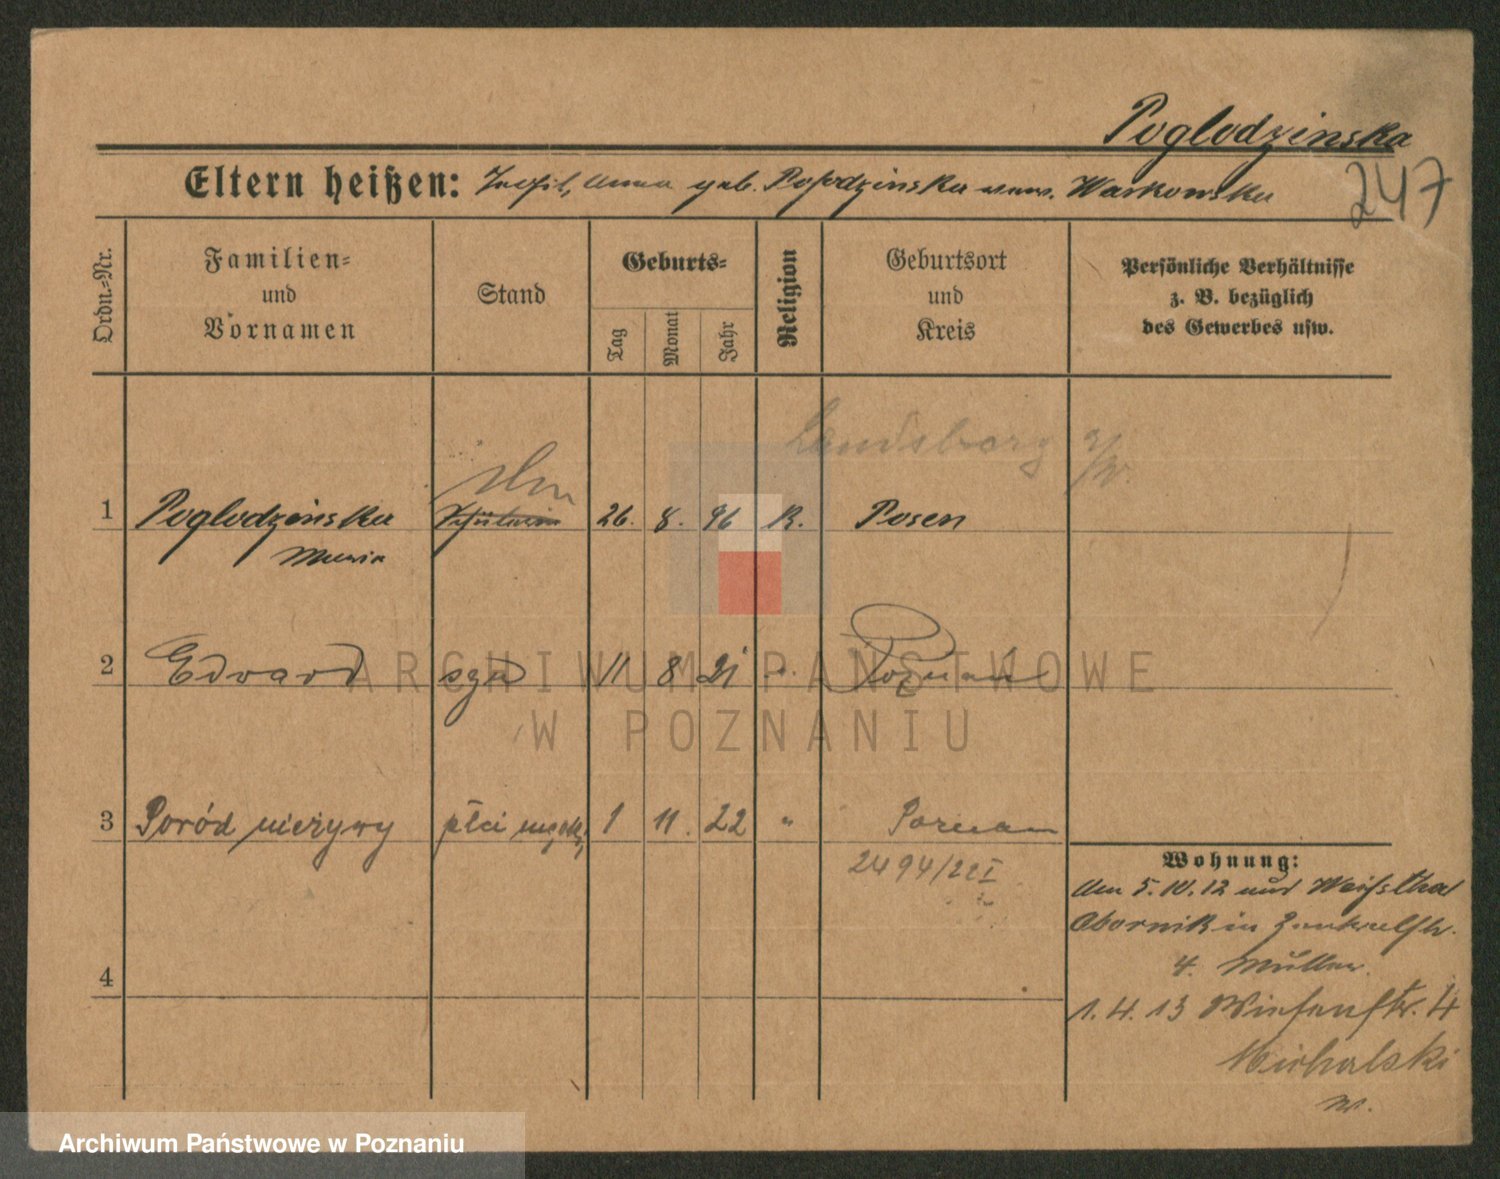 Poglodzinska
247
Eltern heißen: Anna geb. Warkowska
Ordn.=Nr.
Familien=
und
Vornamen
Stand
Geburts=
Tag
Monat
Jahr
Religion
Geburtsort
und
Kreis
Persönliche Verhältnisse
z. B. bezüglich
des Gewerbes usw.
Landsberg a/W.
1 Poglodzinska Schülerin 26. 8. 96 K. Posen
Maria
2 Edward 11 8 21 Poznań
3 Poród nieżywy płci 1 11. 22 " Poznan
2494/22 I
4
Wohnung:
Am 5. 10. 12 Weissthal
Obornik in
4. Müller.
1. 4. 13 Wiesenstr. 4
Michalski
w.
ARCHIWUM PAŃSTWOWE
W POZNANIU
Archiwum Państwowe w Poznaniu